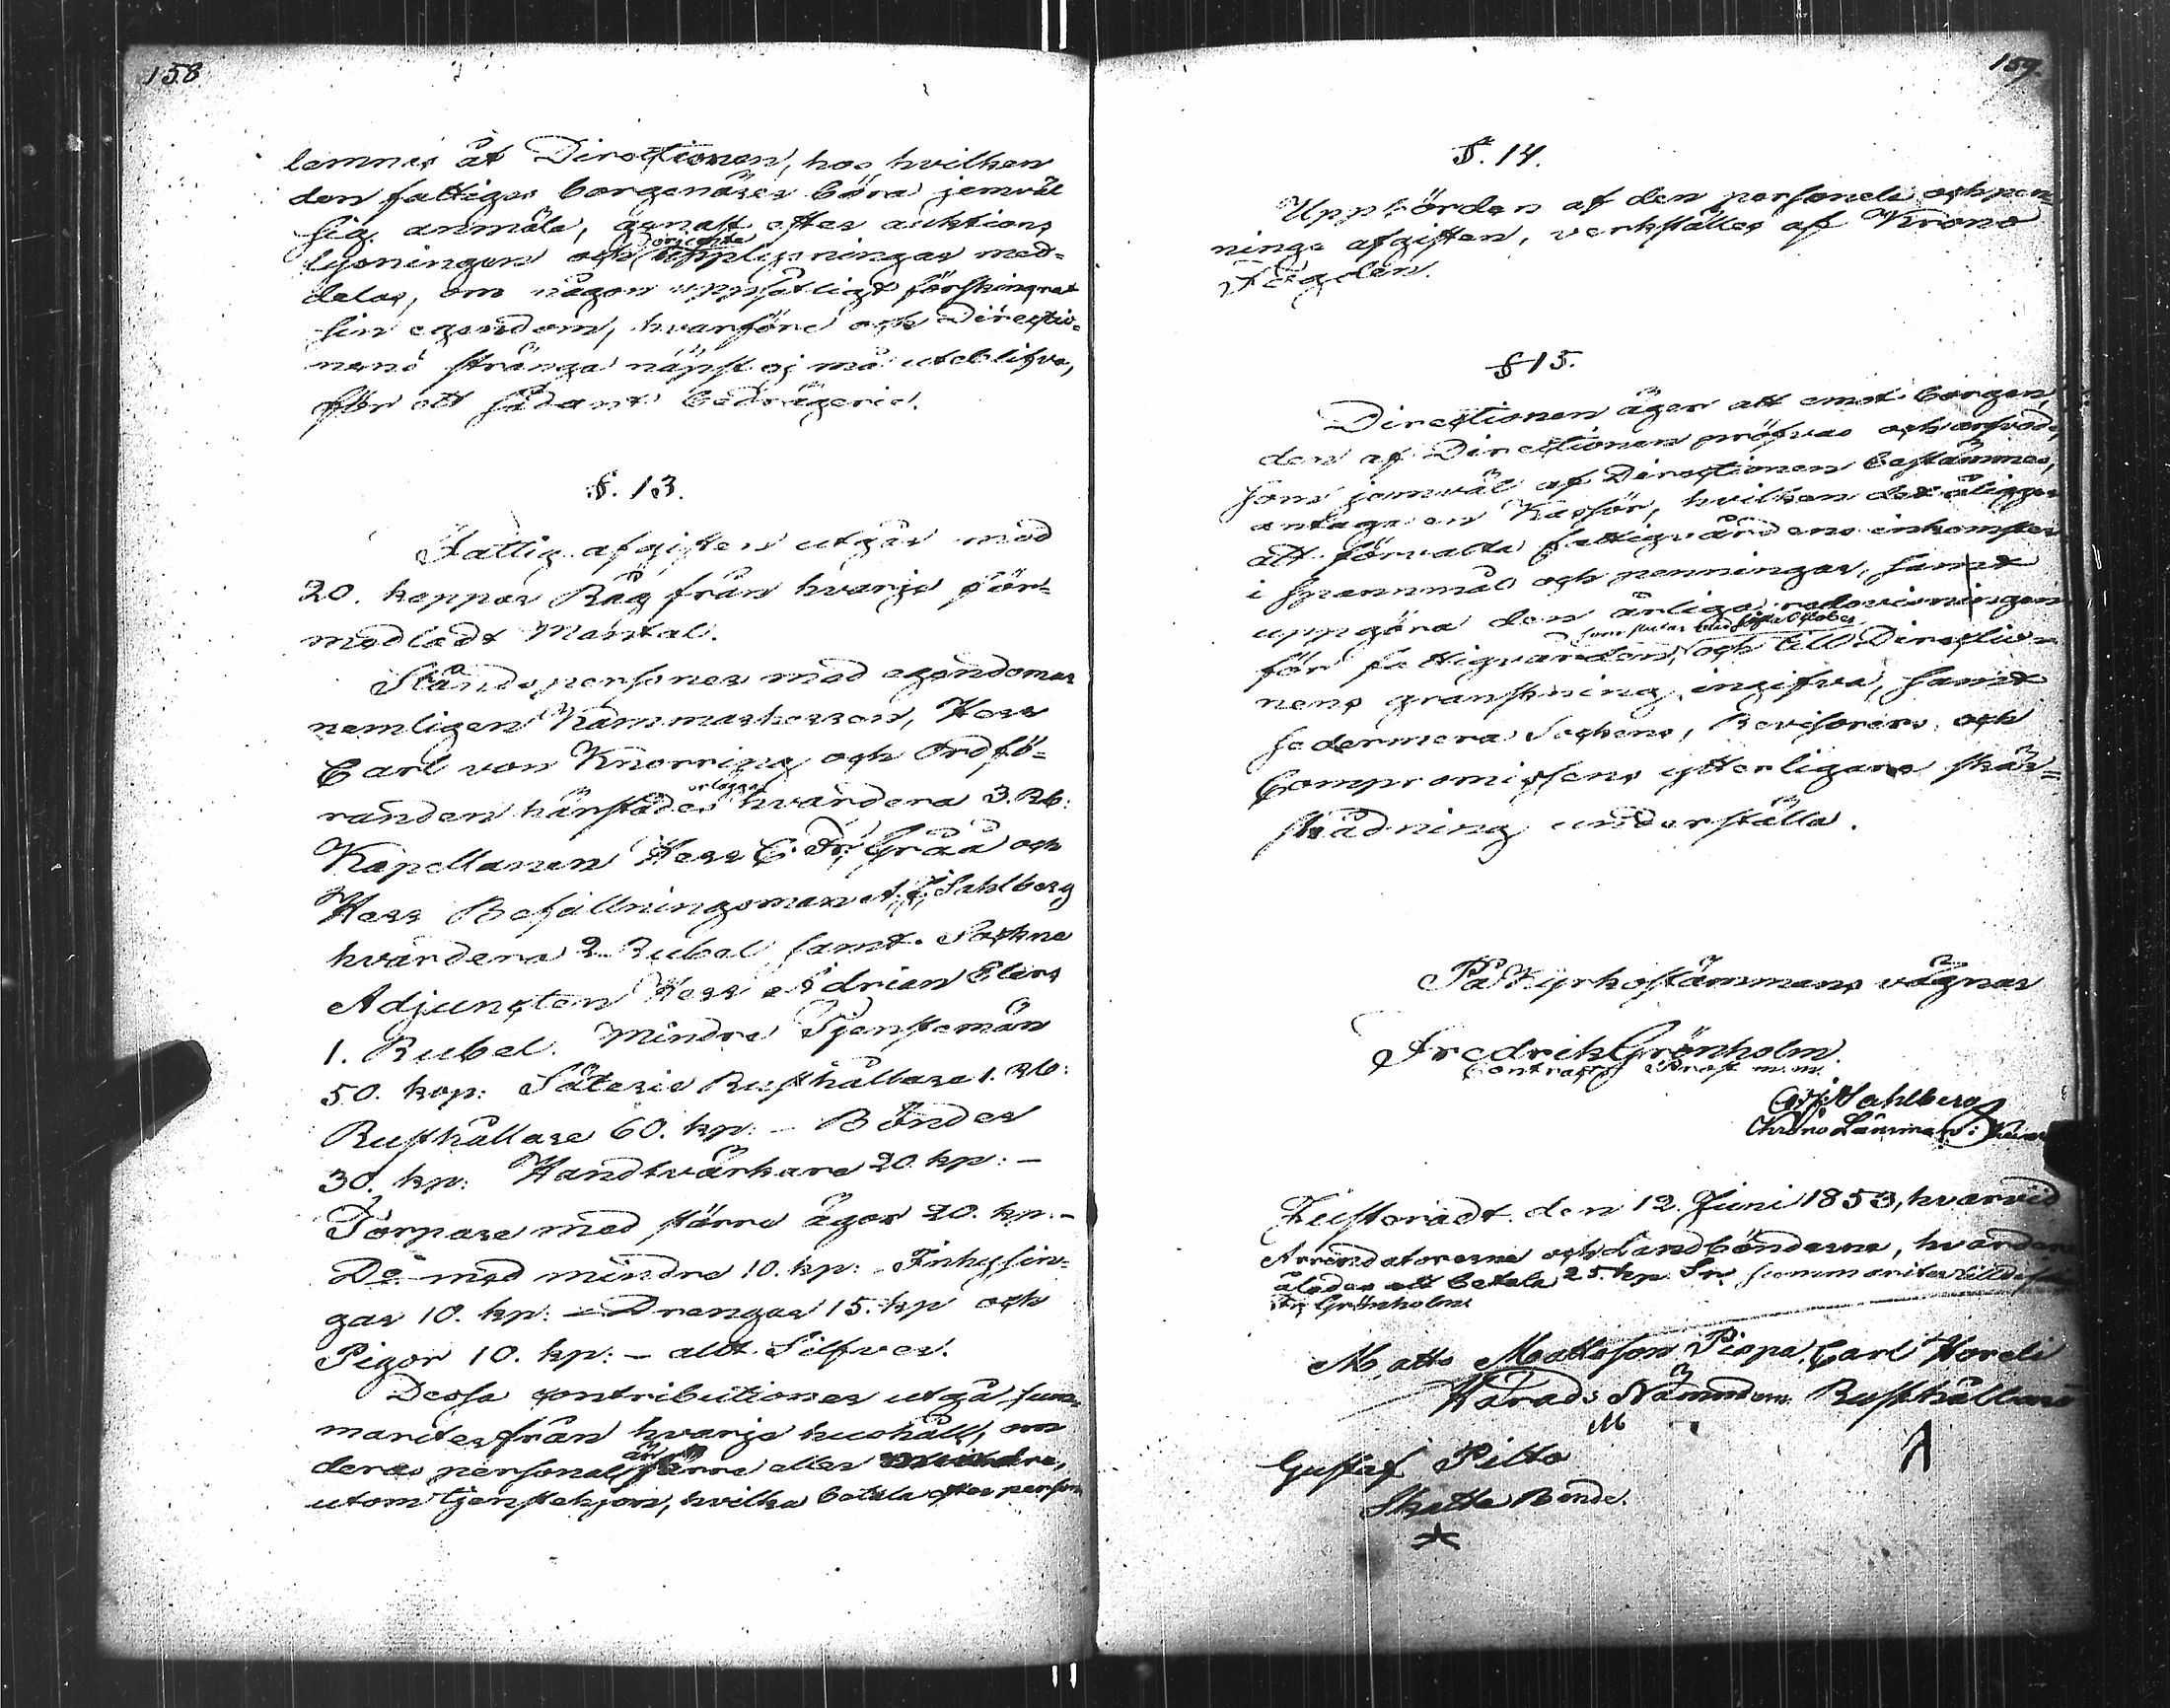 158
lemnas åt Directionen, hos hvilken
den fattiges borgenärer böra jemväl
sig anmäla, genast efter auktions
lysningen och upplysningar med-
delas, om någon uppsåtligt förskingrat
sin egendom, hvarföre och Directio-
nens stränga näpst ej må uteblifva,
för ett sådant bedrägeri.
§. 13.
Fattig afgiften utgår med
20. kappar Råg från hvarje för-
medladt Mantal.
Stånds personer med egendomar
nemligen Kammarherren, Herr
Carl von Knorring och Ordfö-
randen härstädes erlägga hvardera 3. Rb:
Kapellanen Herr C. Fr: Gråå och
Herr Befallningsman A. F. Sahlberg
hvardera 2 Rubel samt Sockne
Adjuncten Herr Adrian Elers
1. Rubel. Mindre Tjenstemän
50. kop: Säterie Rusthållare 1. Rb:
Rusthållare 60. kp: – Bönder
30. kp: Handtvärkare 20. kp: –
Torpare med större ägor 20. kp: –
Do med mindre 10. kp: Inhysin-
gar 10. kp: – Drengar 15. kp och
Pigor 10. kp: – allt Silfver.
Dessa contributioner utgå sum-
mariter från hvarje hushåll, om
deras personal är större eller mindre,
utom tjenstehjon, hvilka betala efter person
159.
§. 14.
Uppbörden af den personela och pen-
ninge afgiften, verkställes af Krono
Fogden.
§ 15.
Directionen äger att emot borgen,
den af Directionen pröfvas och arfvode,
som jemväl af Directionen bestämmes,
antaga en Kassör, hvilken det åligger
att förvalta fattigvårdens inkomster
i spannmål och penningar, samt
uppgöra den årliga redovisningen
för fattigvården, som slutas med sista October och till Directio-
nens granskning ingifva, samt
sedermera Sockens, Revisorers och
Compromissens ytterligare skär-
skådning underställa.
På Kyrkostämmans vägnar
Fredrik Grönholm.
Contracts Prost m.m.
Sahlberg
Chrono Länsman
Justeradt den 12. Juni 1853, hvarvid
Arrendatorerne och Landbönderne, hvardera
ålades att betala 25. kp. Sr summariter
Grönholm
Matts Mattsson Piopa Carl Hordi
Härads Nämndem. Rusthållare
M
Gustaf Pitto
Skatte Bonde.